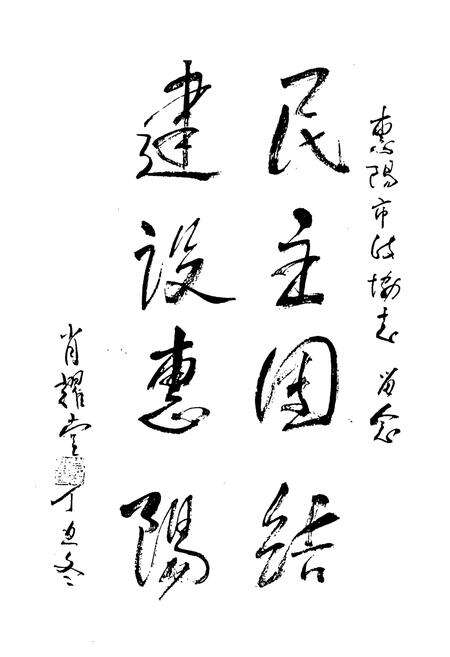 惠陽市政協志 留念
民主团结
建设惠陽
肖耀堂 丁丑冬